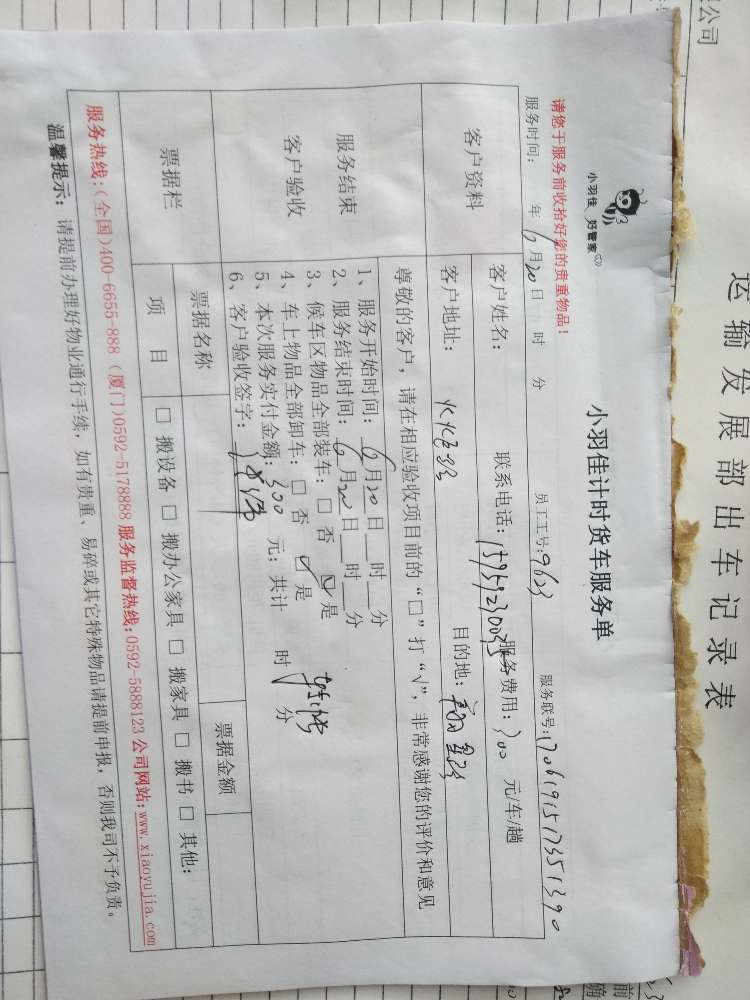 公司
运输发展部出车记录表
小羽佳 好管家
小羽佳计时货车服务单
请您于服务前收拾好您的贵重物品！
服务时间： 年 6月20日 时 分 员工工号：9623 服务联号：
客户资料
客户姓名： 联系电话： 服务费用：300 元/车/趟
客户地址： 目的地：
服务结束
客户验收
尊敬的客户，请在相应验收项目前的“□”打“√”，非常感谢您的评价和意见
1、服务开始时间：6月20日 时 分
2、服务结束时间：6月20日 时 分
3、候车区物品全部装车：□ 否 ☑ 是
4、车上物品全部卸车：□ 否 ☑ 是
5、本次服务实付金额：300 元；共计 时 分
6、客户验收签字：
票据栏
票据名称 票据金额
项 目 □ 搬设备 □ 搬办公家具 □ 搬家具 □ 搬书 □ 其他：
服务热线：(全国)400-6655-888 (厦门)0592-5178888 服务监督热线：0592-5888123 公司网站：www.xiaoyujia.com
温馨提示：请提前办理好物业通行手续，如有贵重、易碎或其它特殊物品请提前申报，否则我司不予负责。